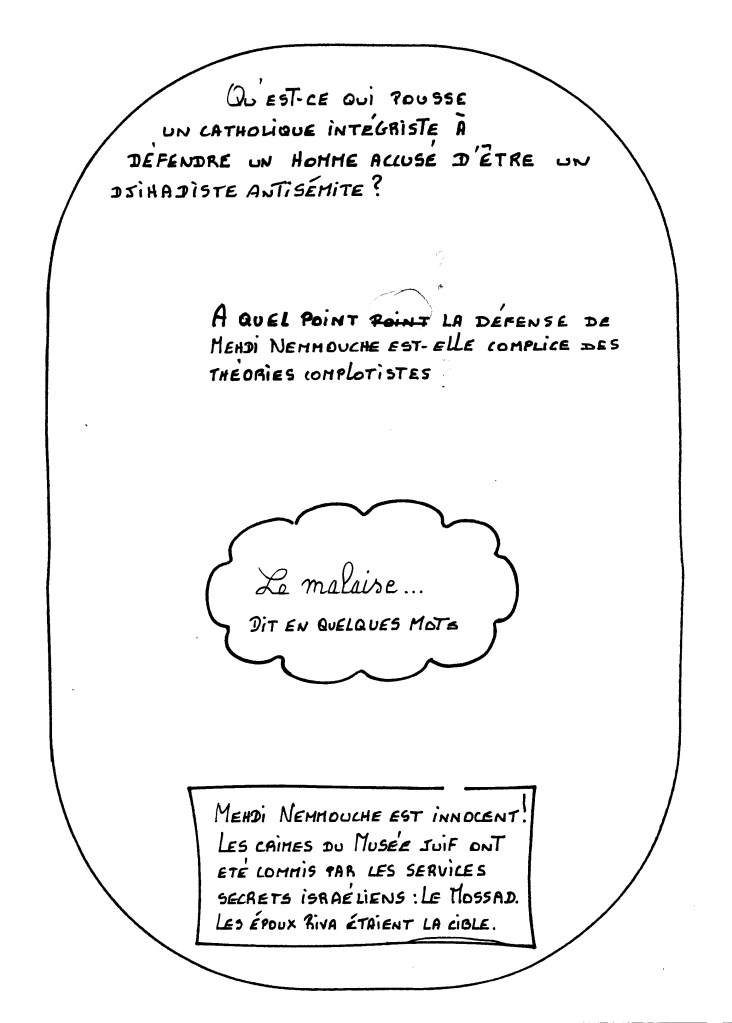 Qu'est-ce qui pousse
un catholique intégriste à
défendre un homme accusé d'être un
djihadiste antisémite ?
A quel point point la défense de
Mehdi Nemmouche est-elle complice des
théories complotistes
Le malaise...
Dit en quelques mots
Mehdi Nemmouche est innocent !
Les crimes du Musée juif ont
été commis par les services
secrets israéliens : Le Mossad.
Les époux Riva étaient la cible.